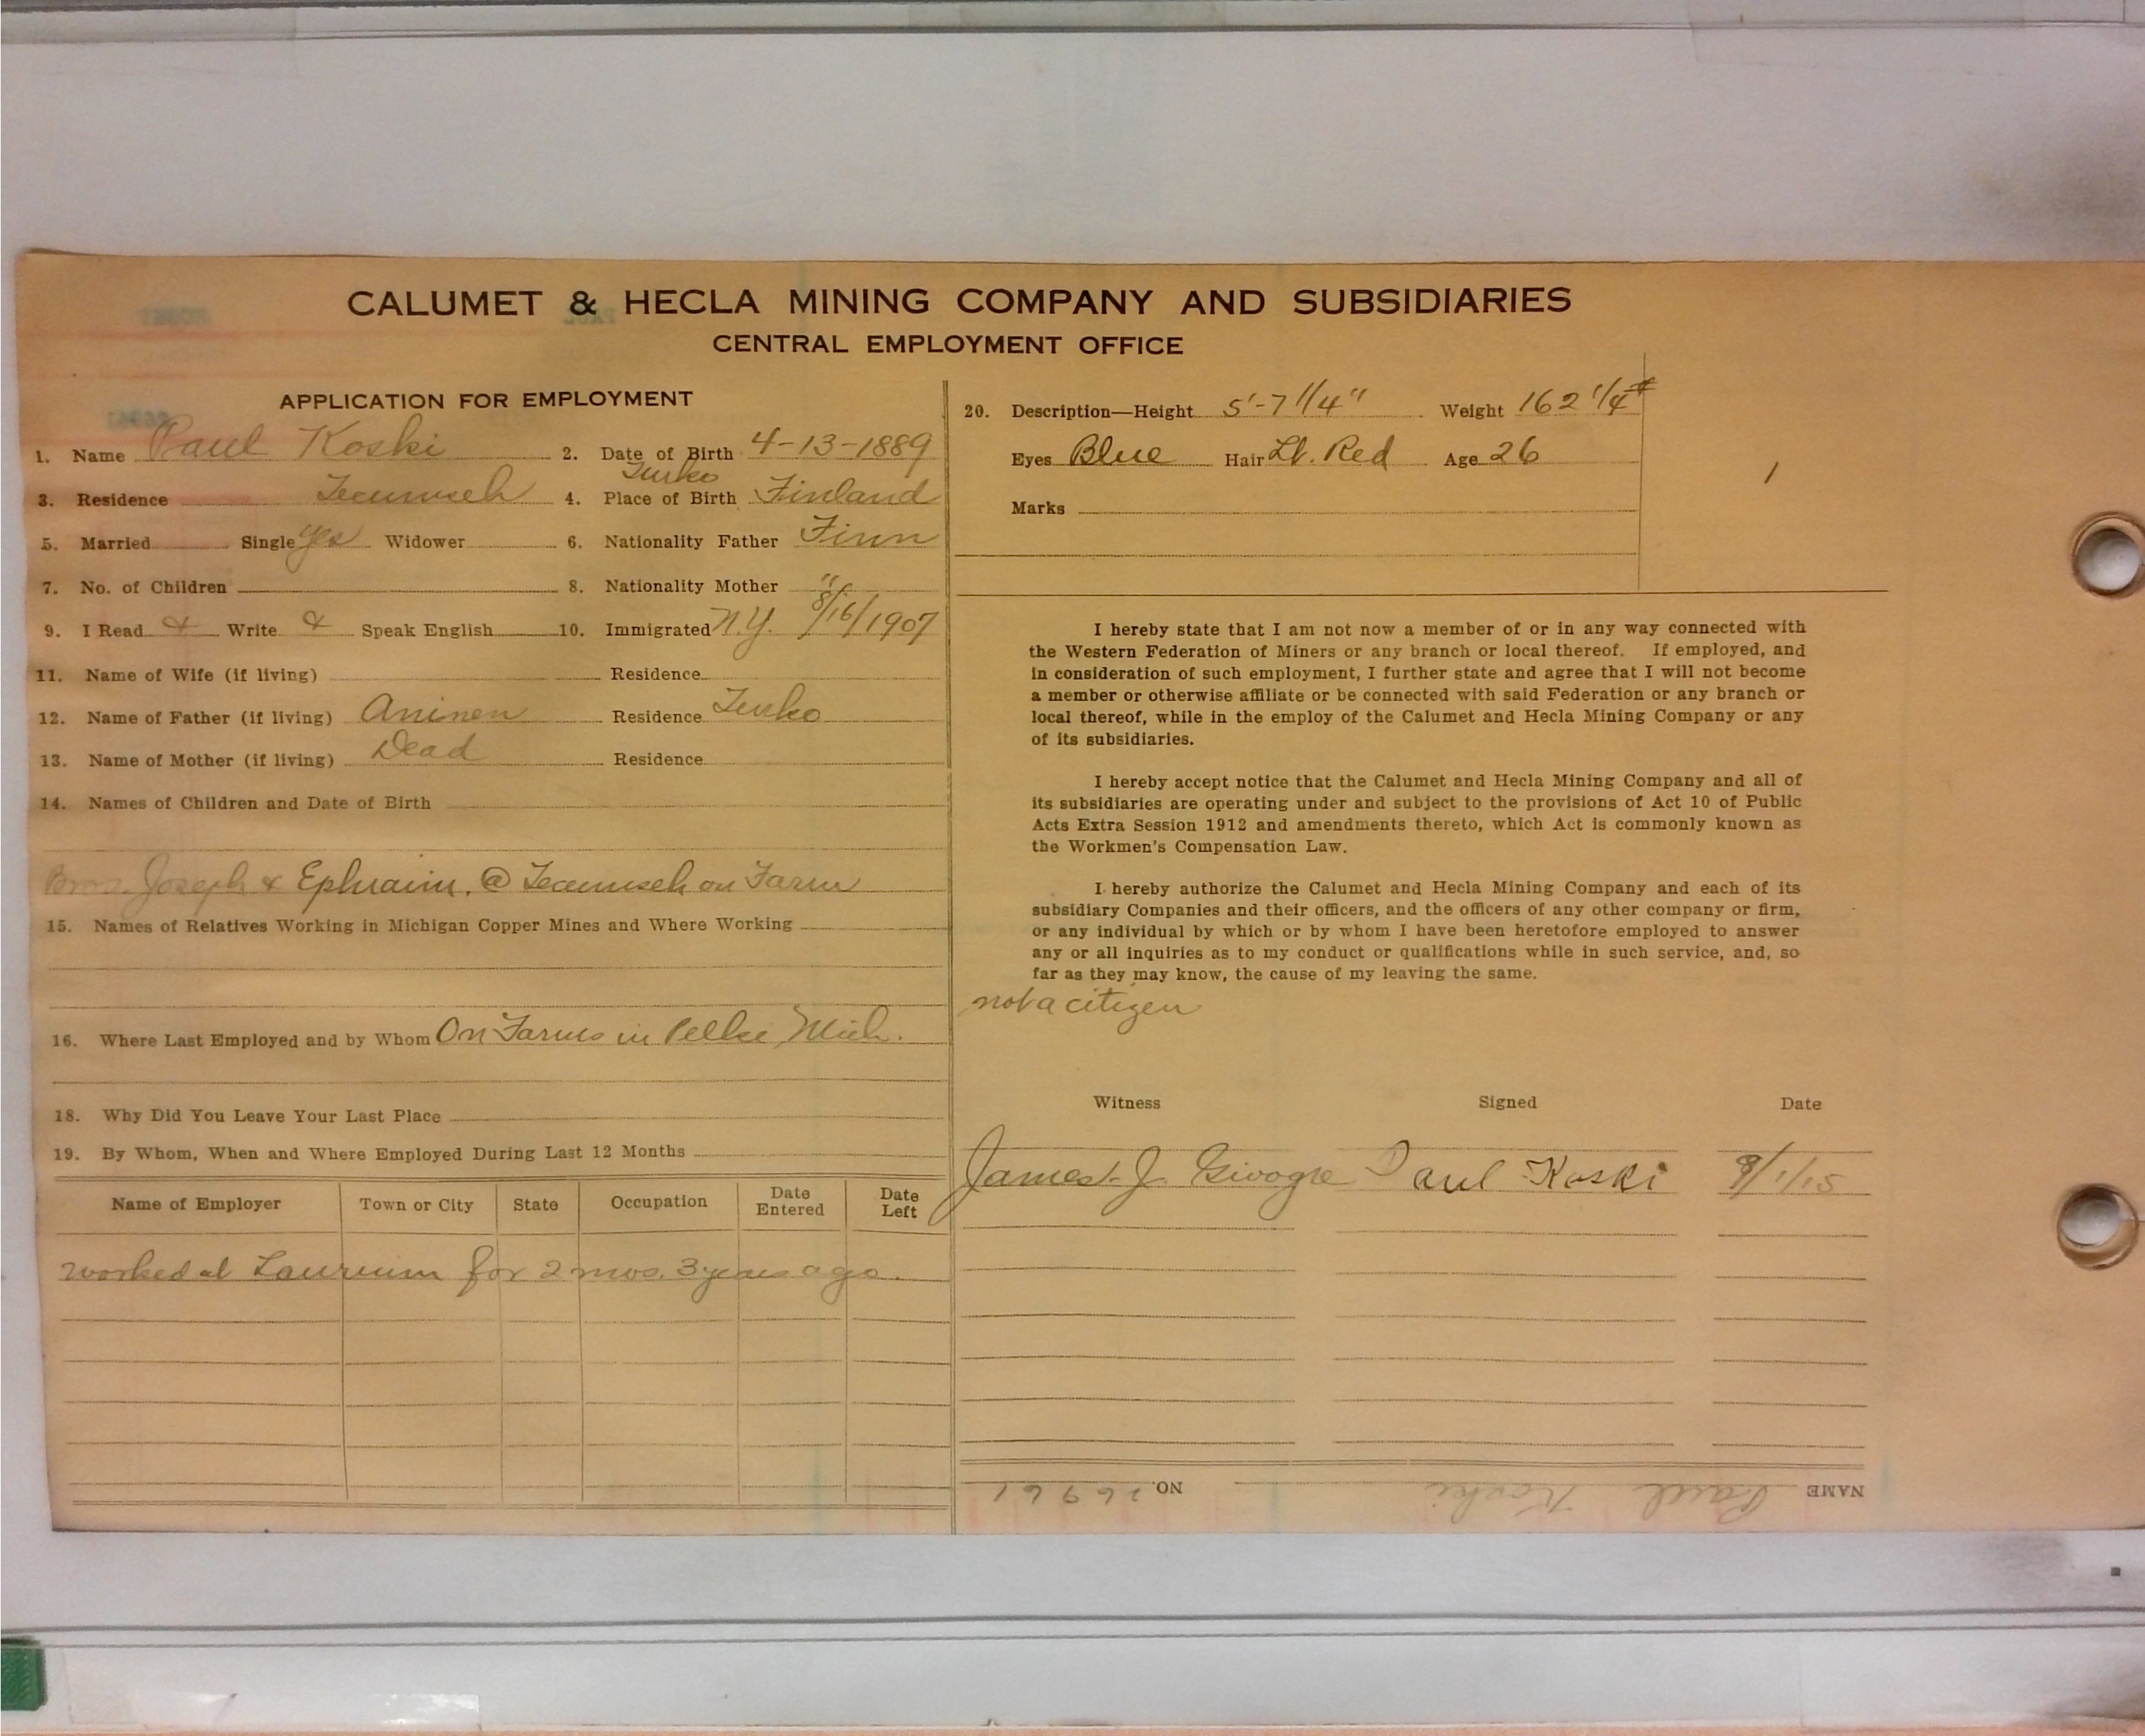 CALUMET & HECLA MINING COMPANY AND SUBSIDIARIES
CENTRAL EMPLOYMENT OFFICE
APPLICATION FOR EMPLOYMENT
1. Name Paul Koski 2. Date of Birth 4-13-1889
3. Residence Tecumseh 4. Place of Birth Turko Finland
5. Married Single Yes Widower 6. Nationality Father Finn
7. No. of Children 8. Nationality Mother "
9. I Read & Write & Speak English 10. Immigrated N.Y. 8/16/1907
11. Name of Wife (if living) Residence
12. Name of Father (if living) Aninen Residence Turko
13. Name of Mother (if living) Dead Residence
14. Names of Children and Date of Birth
Bros. Joseph & Ephraim. @ Tecumseh on Farm
15. Names of Relatives Working in Michigan Copper Mines and Where Working
16. Where Last Employed and by Whom On Farms in Pelkie, Mich.
18. Why Did You Leave Your Last Place
19. By Whom, When and Where Employed During Last 12 Months
Name of Employer Town or City State Occupation Date Entered Date Left
worked at Laurium for 2 mos. 3 years ago.
20. Description—Height 5'-7 1/4" Weight 162 1/4 #
Eyes Blue Hair Lt. Red Age 26
Marks
1
I hereby state that I am not now a member of or in any way connected with
the Western Federation of Miners or any branch or local thereof. If employed, and
in consideration of such employment, I further state and agree that I will not become
a member or otherwise affiliate or be connected with said Federation or any branch or
local thereof, while in the employ of the Calumet and Hecla Mining Company or any
of its subsidiaries.
I hereby accept notice that the Calumet and Hecla Mining Company and all of
its subsidiaries are operating under and subject to the provisions of Act 10 of Public
Acts Extra Session 1912 and amendments thereto, which Act is commonly known as
the Workmen's Compensation Law.
I hereby authorize the Calumet and Hecla Mining Company and each of its
subsidiary Companies and their officers, and the officers of any other company or firm,
or any individual by which or by whom I have been heretofore employed to answer
any or all inquiries as to my conduct or qualifications while in such service, and, so
far as they may know, the cause of my leaving the same.
not a citizen
Witness Signed Date
James J. Paul Koski 9/1/15
NAME Paul Koski NO.